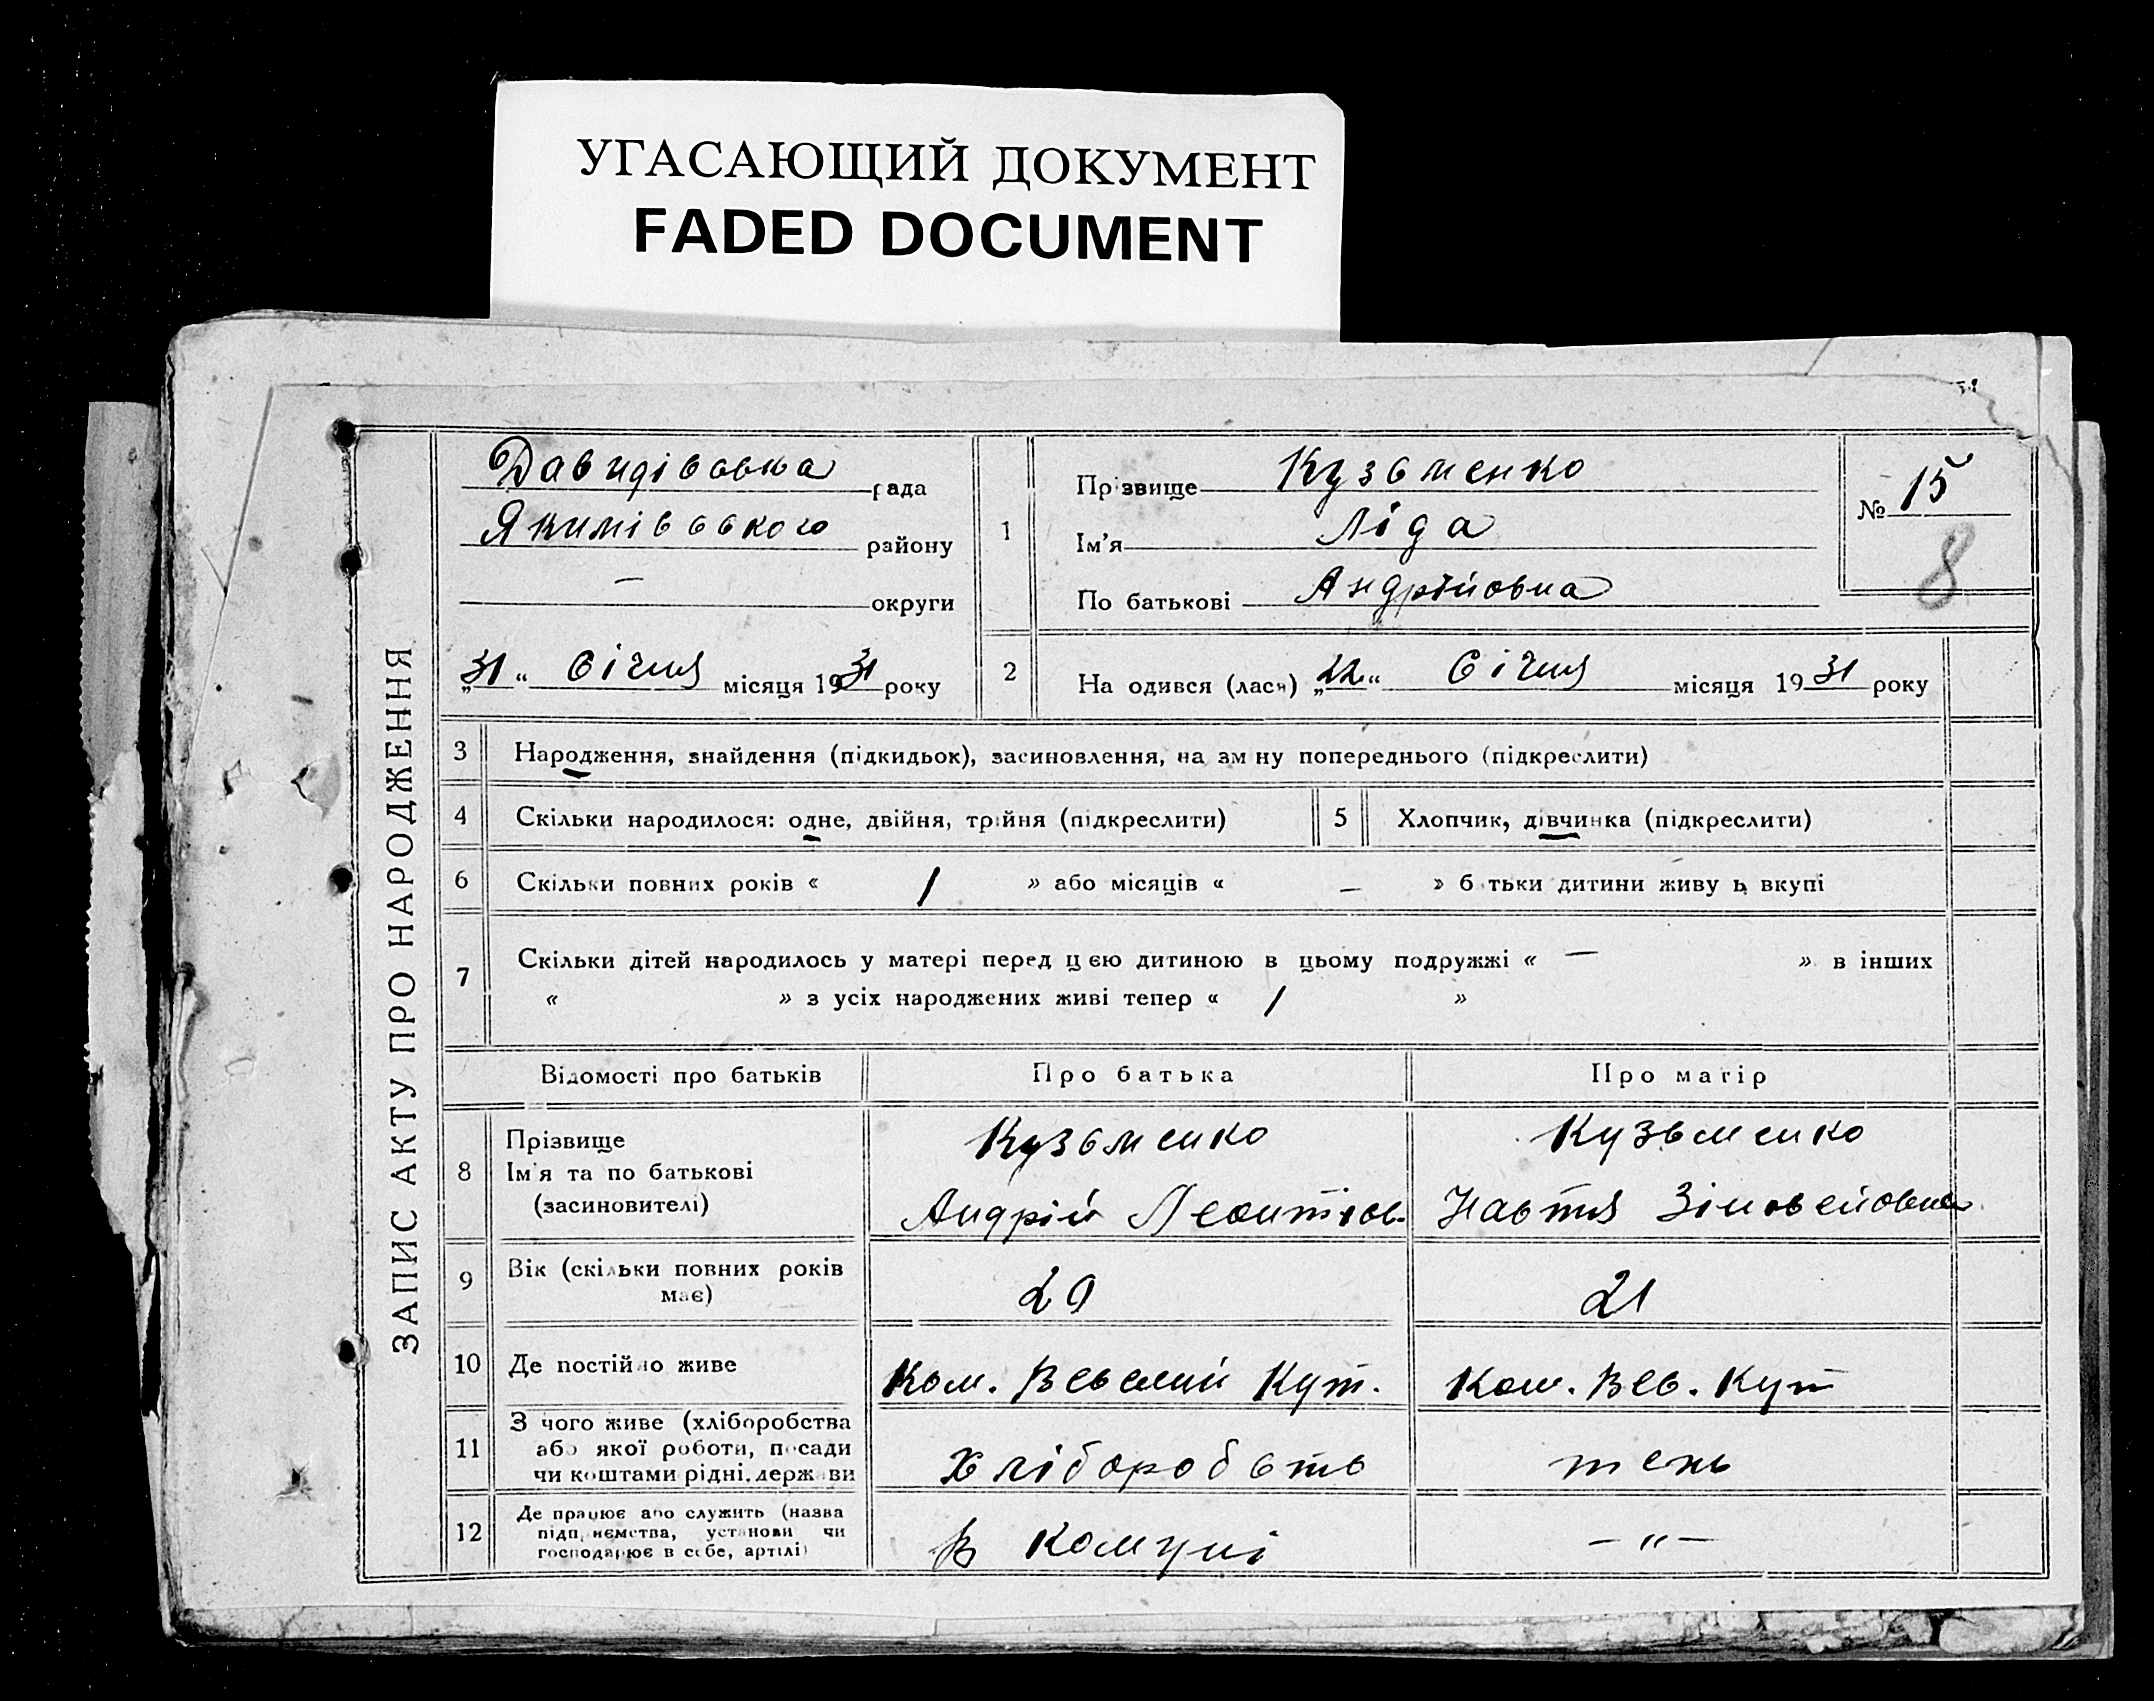 УГАСАЮЩИЙ ДОКУМЕНТ
FADED DOCUMENT
ЗАПИС АКТУ ПРО НАРОДЖЕННЯ
Давидівська рада
Якимівського району
— округи
„31“ Січня місяця 1931 року
1
Прізвище Кузьменко
Ім'я Ліда
По батькові Андрійовна
№ 15
8
2 На одився (лася) „22“ Січня місяця 1931 року
3 Народження, знайдення (підкидьок), засиновлення, на зм ну попереднього (підкреслити)
4 Скільки народилося: одне, двійня, трійня (підкреслити) 5 Хлопчик, дівчинка (підкреслити)
6 Скільки повних років « 1 » або місяців « — » б тьки дитини живу ь вкупі
7 Скільки дітей народилось у матері перед цією дитиною в цьому подружжі « — » в інших
« » з усіх народжених живі тепер « 1 »
Відомості про батьків Про батька Про матір
8 Прізвище Кузьменко Кузьменко
Ім'я та по батькові
(засиновителі) Андрій Леонтіов. Настя
9 Вік (скільки повних років
має) 29 21
10 Де постійно живе Ком. Веселий Кут. Ком. Вес. Кут
11 З чого живе (хліборобства
або якої роботи, посади
чи коштами рідні, держави Хліборобств
12 Де працює або служить (назва
підприємства, установи чи
господарює в себе, артілі) В комуні —"—